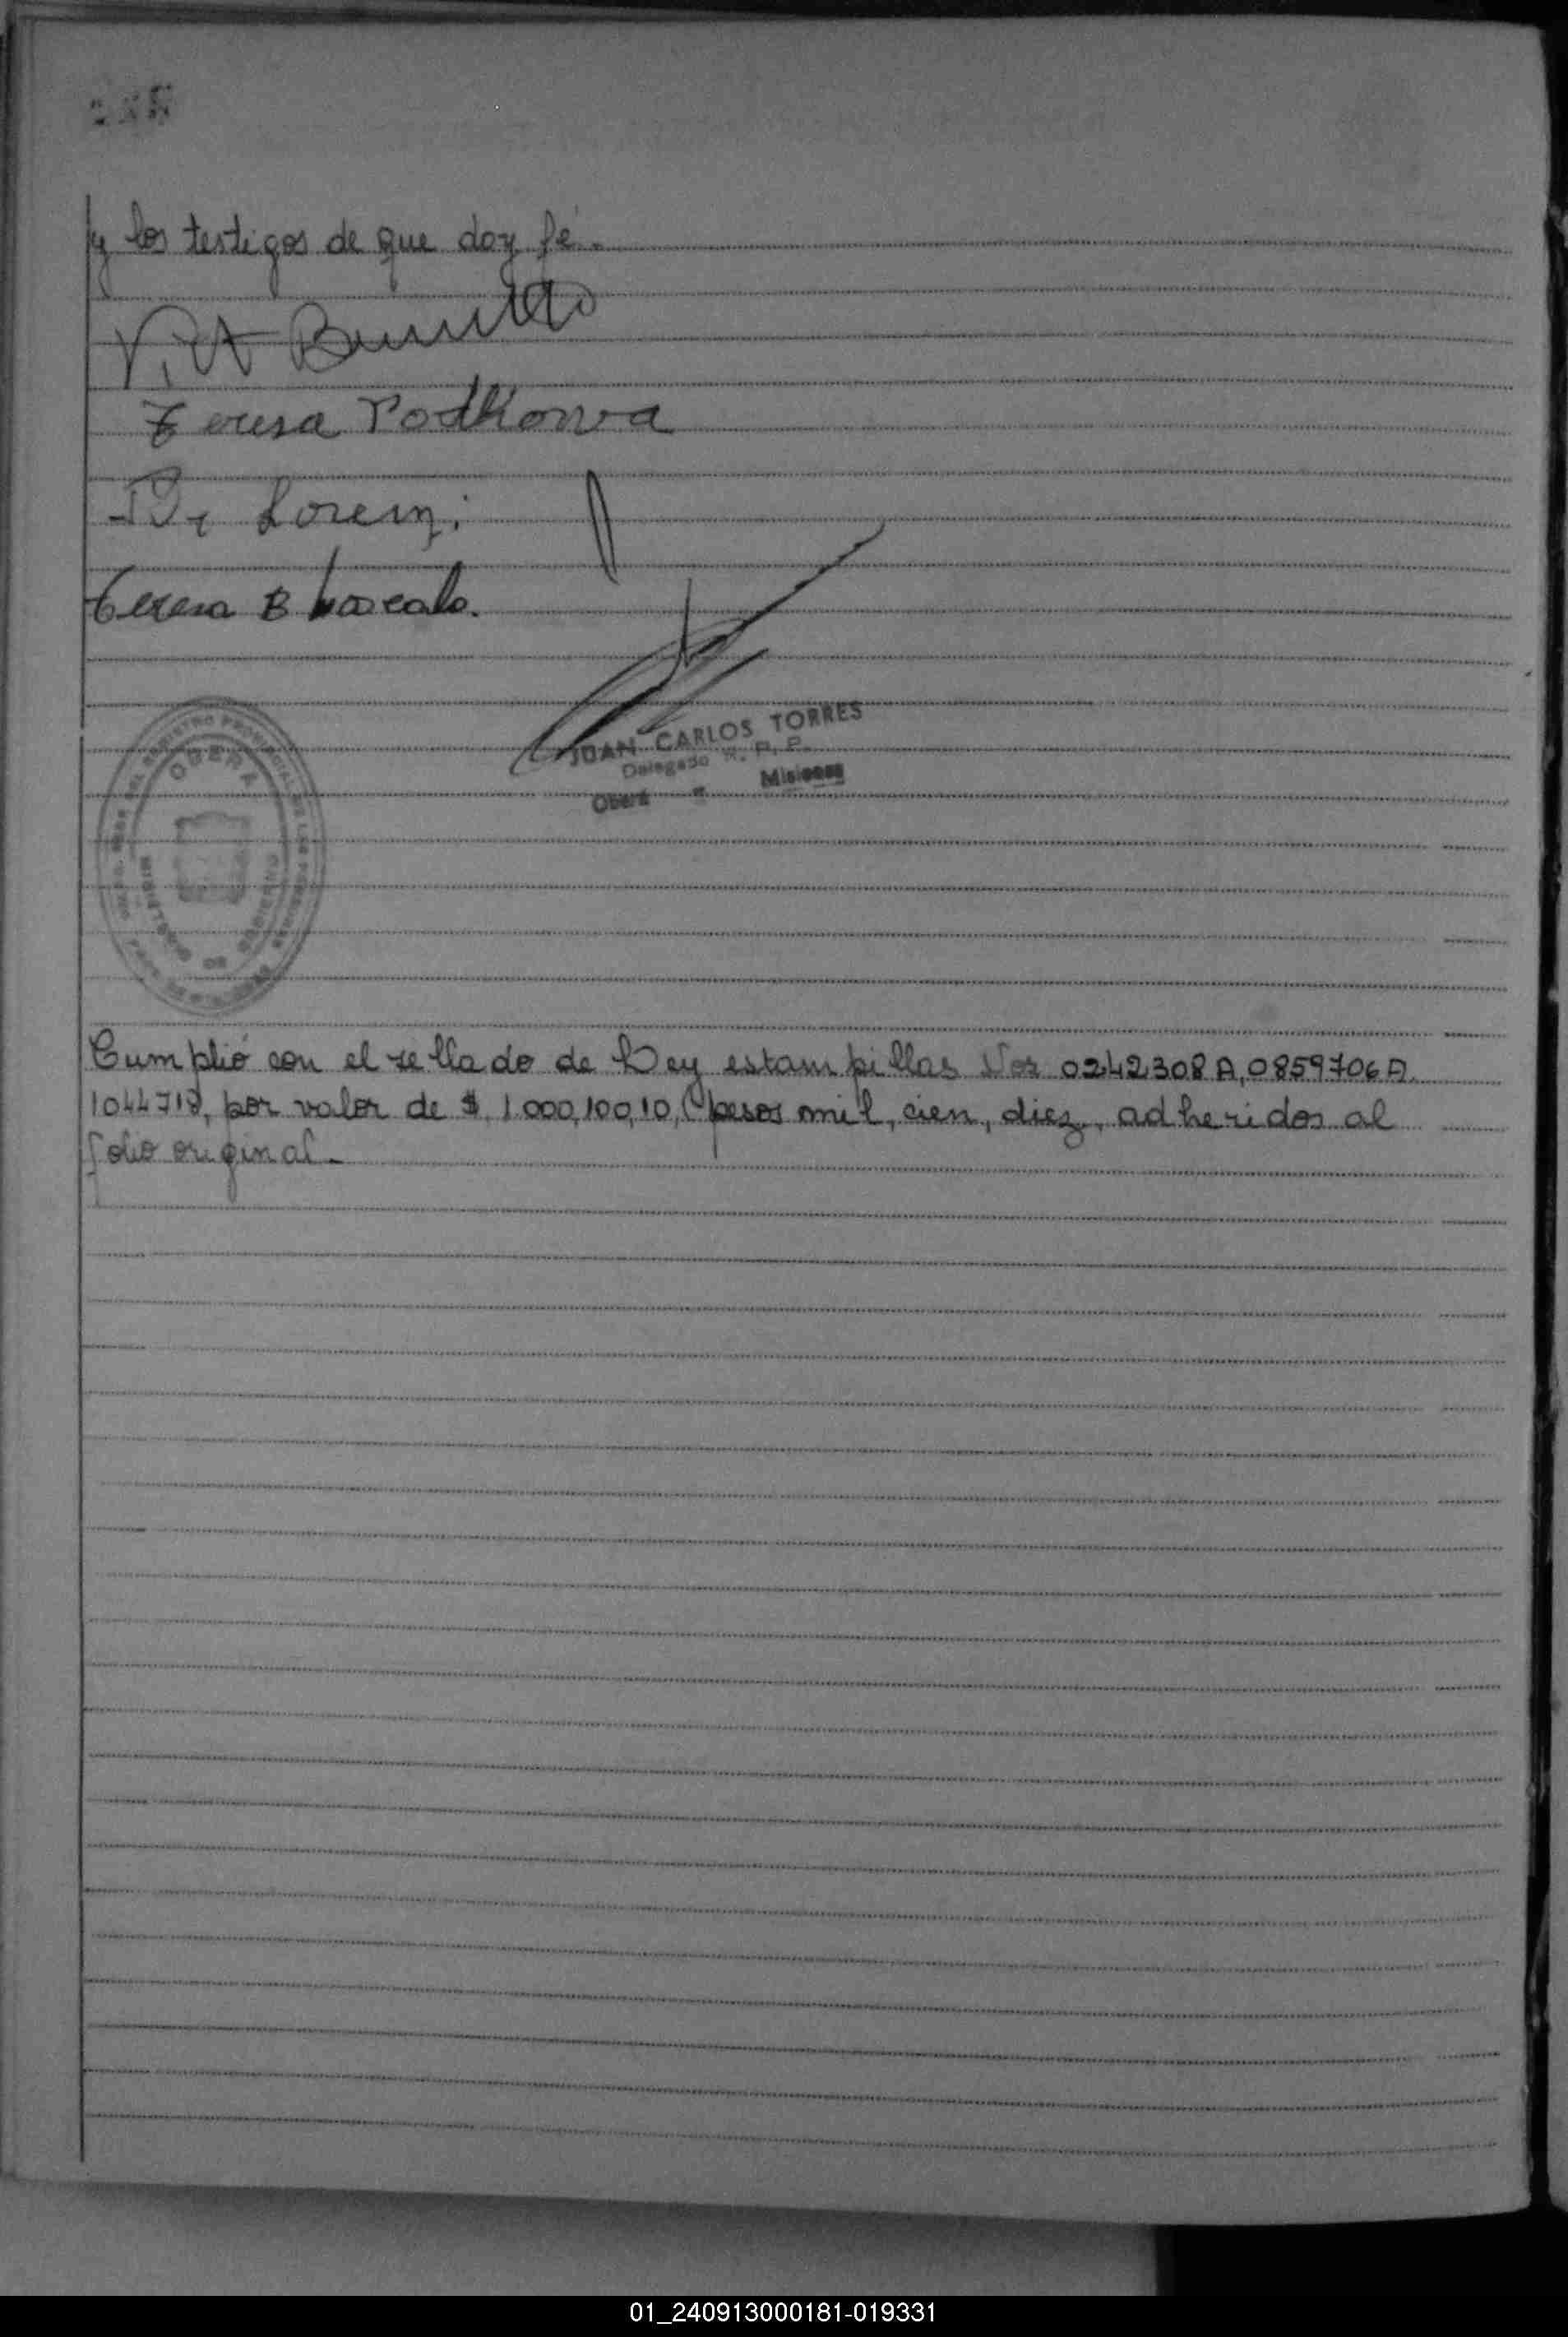 y los testigos de que doy fé.
Teresa Podkowa
Lorenzi
Teresa B
JUAN CARLOS TORRES
Delegado R. P. P.
Oberá - Misiones
OBERA
MISIONES
Cumplió con el sellado de Ley estampillas Nos 0242308 A, 0859706 A.
1044718, por valor de $ 1.000,100,10, (pesos mil, cien, diez, adheridos al
folio original.-
01_240913000181-019331